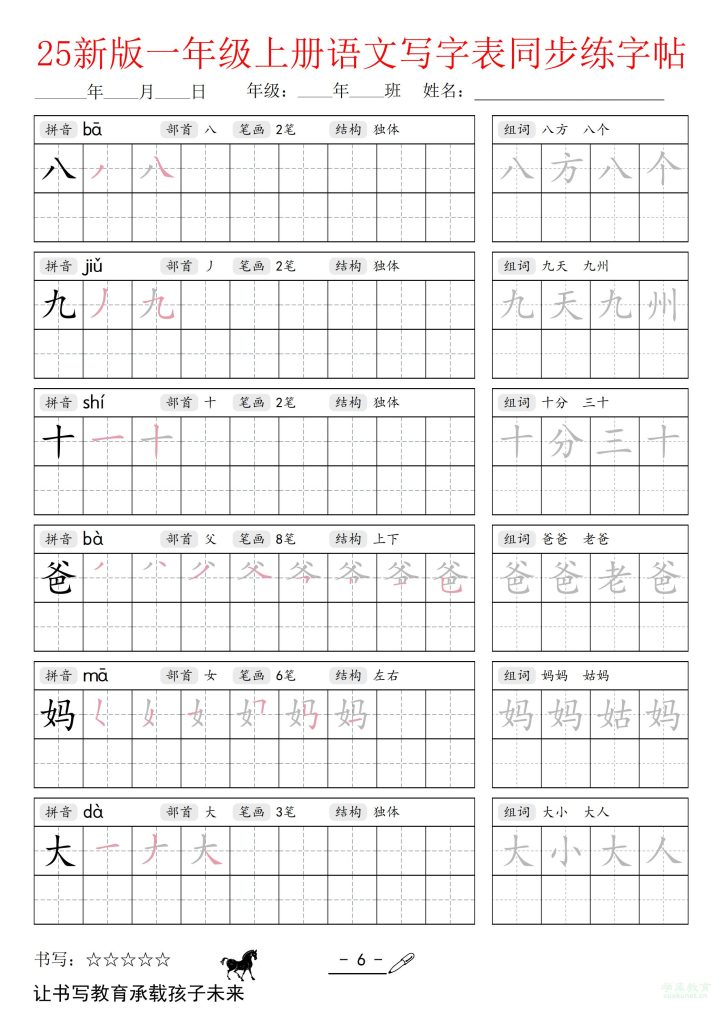 25新版一年级上册语文写字表同步练字帖
______年____月____日 年级：____年____班 姓名：____________________
拼音 bā 部首 八 笔画 2笔 结构 独体 组词 八方 八个
八 八 八方八个
拼音 jiǔ 部首 丿 笔画 2笔 结构 独体 组词 九天 九州
九 九 九天九州
拼音 shí 部首 十 笔画 2笔 结构 独体 组词 十分 三十
十 一 十 十分三十
拼音 bà 部首 父 笔画 8笔 结构 上下 组词 爸爸 老爸
爸 爸 爸爸老爸
拼音 mā 部首 女 笔画 6笔 结构 左右 组词 妈妈 姑妈
妈 妈 妈妈姑妈
拼音 dà 部首 大 笔画 3笔 结构 独体 组词 大小 大人
大 一 大 大小大人
书写：☆☆☆☆☆ - 6 -
让书写教育承载孩子未来